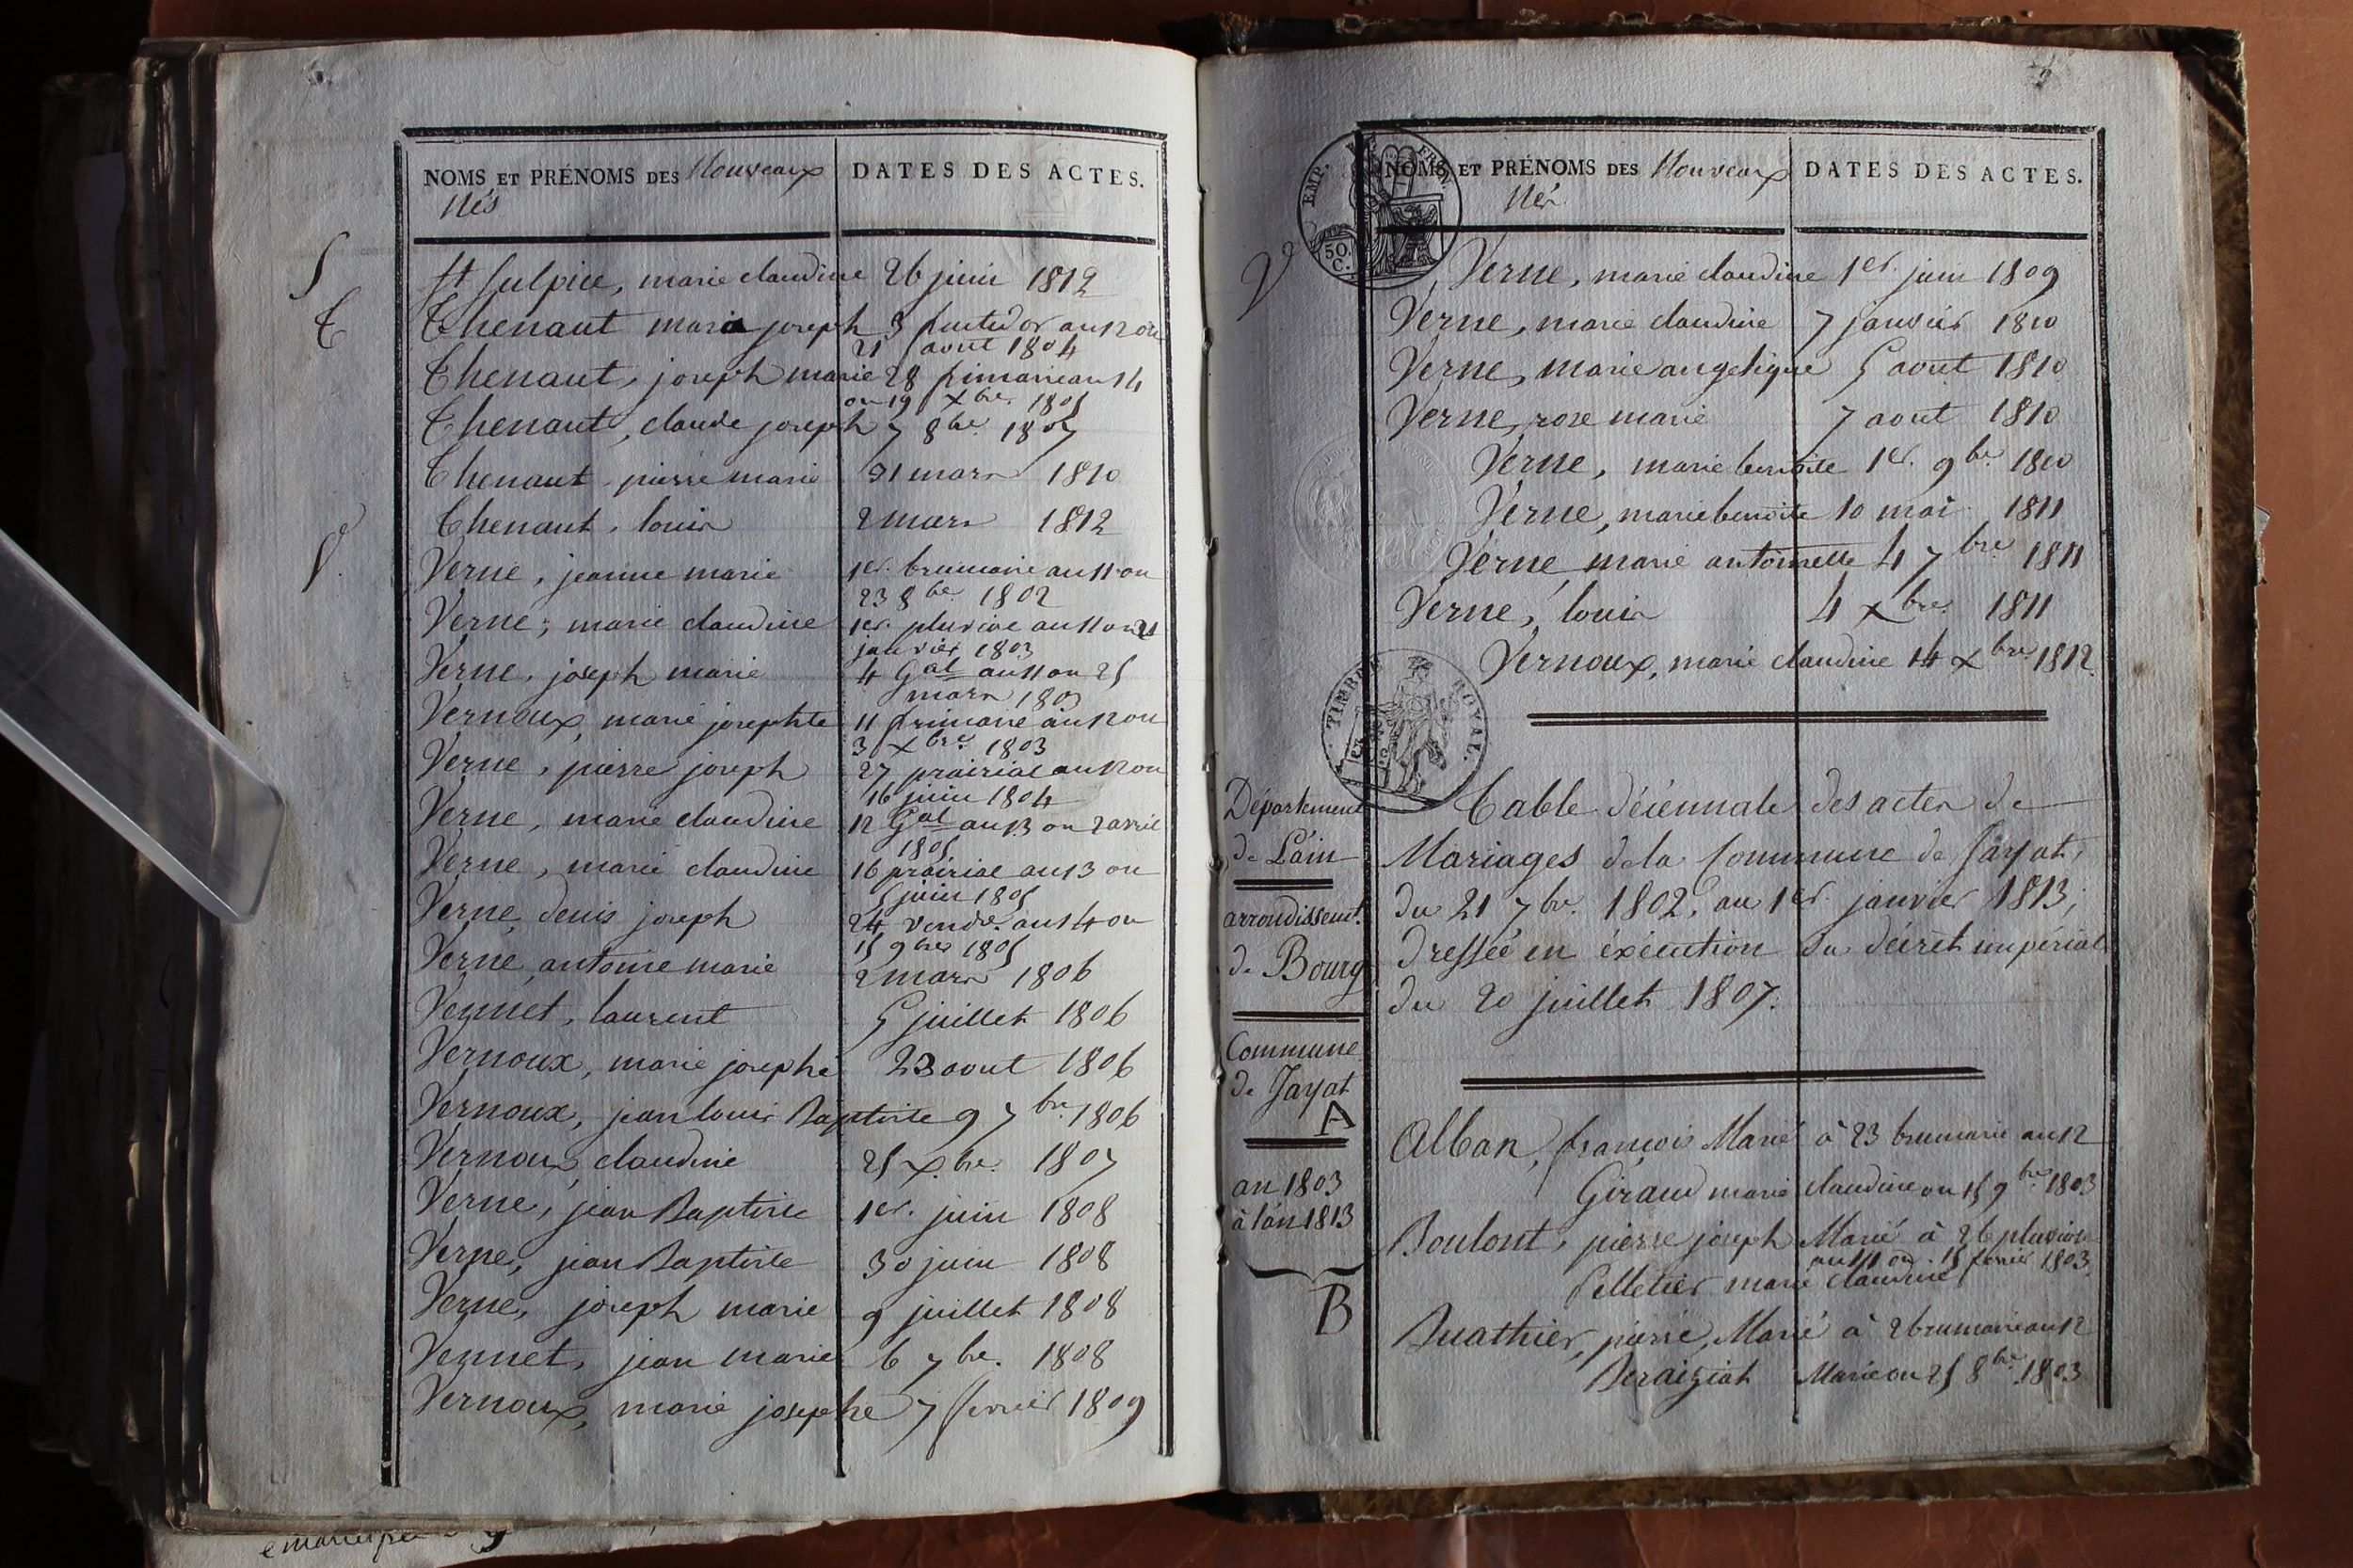 NOMS ET PRÉNOMS DES Nouveaux
Nés
DATES DES ACTES.
S
St Sulpice, marie claudine 26 juin 1812
T
Thenaut maria joseph 3 fructidor an 12 ou
21 aout 1804
Thenaut, joseph marie 28 frimaire an 14
ou 19 Xbre. 1805
Thenaut, claude joseph 7 8bre. 1807
Thenaut, pierre marie 31 mars 1810
Thenaut, louis 2 mars 1812
V
Verne, jeanne marie 1er. brumaire an 11 ou
23 8bre 1802
Verne, marie claudine 1er. pluviose an 11 ou 21
janvier 1803
Verne, joseph marie 4 Gal an 11 ou 25
mars 1803
Vernoux, marie josephte 11 frimaire an 12 ou
3 Xbre. 1803
Verne, pierre joseph 27 prairial an 12 ou
16 juin 1804
Verne, marie claudine 12 Gal an 13 ou 2 avril
1805
Verne, marie claudine 16 prairial an 13 ou
5 juin 1805
Verne, denis joseph 24 vendre. an 14 ou
15 9bre 1805
Verne, antoine marie 2 mars 1806
Vennet, laurent 5 juillet 1806
Vernoux, marie josephe 23 aout 1806
Vernoux, jean louis Baptiste 9 7bre. 1806
Vernoux, claudine 25 Xbre. 1807
Verne, jean Baptiste 1er. juin 1808
Verne, jean Baptiste 30 juin 1808
Verne, joseph marie 9 juillet 1808
Vennet, jean marie 6 7bre. 1808
Vernoux, marie josephe 7 fevrier 1809
NOMS ET PRÉNOMS DES Nouveaux
Nés
DATES DES ACTES.
EMP. FRAN.
50
C.
V
Verne, marie claudine 1er. juin 1809
Verne, marie claudine 7 janvier 1810
Verne, marie angelique 5 aout 1810
Verne, rose marie 7 aout 1810
Verne, marie benoite 1er. 9bre 1810
Verne, marie benoite 10 mai 1811
Verne, marie antoinette 4 7bre 1811
Verne, louis 4 Xbre. 1811
Vernoux, marie claudine 14 Xbre 1812.
TIMBRE ROYAL.
Département
de L'ain
arrondissemt.
de Bourg
Commune
de Jayat
A
an 1803
à l'an 1813
B
Table décennale des actes de
Mariages de la Commune de Jayat,
du 21 7bre. 1802, au 1er. janvier 1813,
dressée en éxécution du décret impérial
du 20 juillet 1807.
Alban, françois Marié à 23 brumaire an 12
Giraud marie claudine ou 15 9bre. 1803
Boulont, pierre joseph Marié à 26 pluviose
an 11 ou 15 fevrier 1803
Pelletier marie claudine
Buathier, pierre, Marié à 2 brumaire an 12
Deraiziat Marie ou 25 8bre. 1803